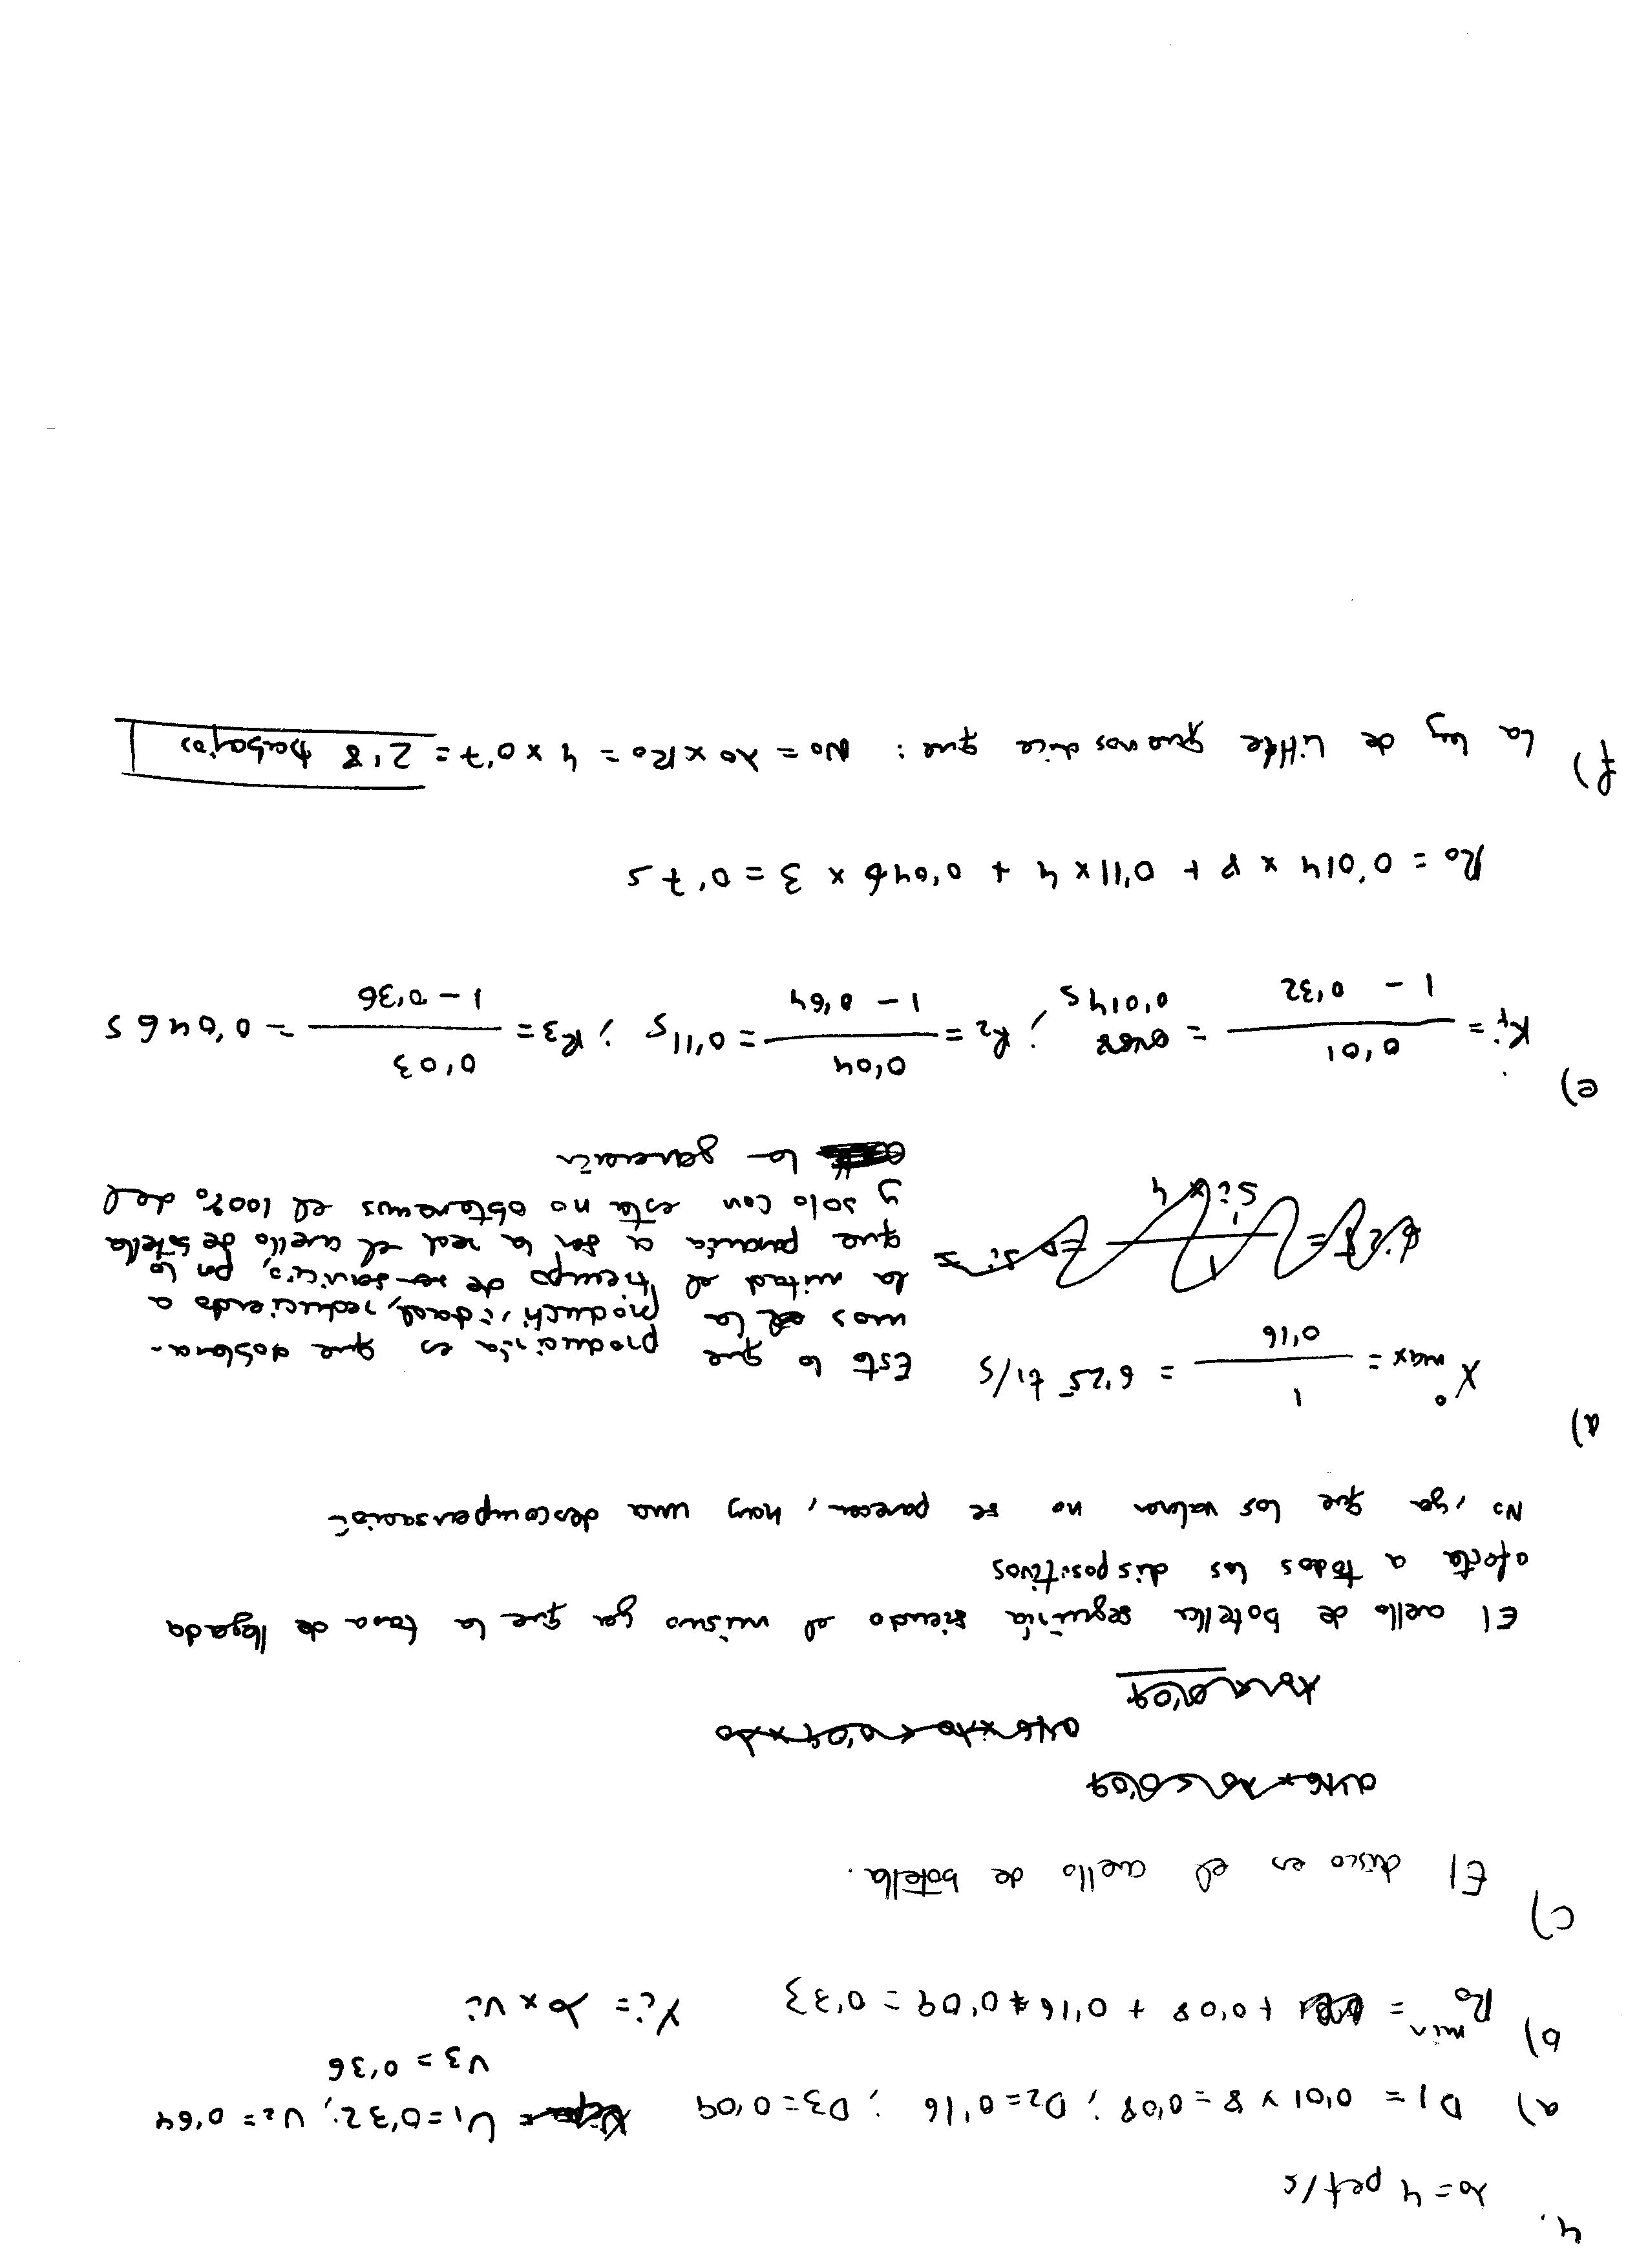 4.
λo = 4 pet/s
a) D1 = 0'01 x 8 = 0'08 ; D2 = 0'16 ; D3 = 0'09 U1 = 0'32 ; U2 = 0'64
U3 = 0'36
b) Ro min = + 0'08 + 0'16 + 0'09 = 0'33 Xi = λo x Vi
c)
El disco es el cuello de botella.
0'16 x λo < 0'09
0'16 x λo < 0'09 x λo
λo < 0'09
El cuello de botella seguiría siendo el mismo ya que la tasa de llegada
afecta a todos los dispositivos
No, ya que los valores no se parecen, hay una descompensación
d)
X°max = 1 / 0'16 = 6'25 tr/s
6'25 = 1 / Si x 4 => Si =
Esto lo que produciría es que doblara-
mos la productividad, reduciendo a
la mitad el tiempo de servicio, por lo
que pasaría a ser la red el cuello de botella
y solo con esta no obtenemos el 100% del
la ganancia
e)
R1 = 0'01 / 1 - 0'32 = 0'014 s ; R2 = 0'04 / 1 - 0'64 = 0'11 s ; R3 = 0'03 / 1 - 0'36 = 0'046 s
Ro = 0'014 x 8 + 0'11 x 4 + 0'046 x 3 = 0'7 s
f) La ley de Little que nos dice que : No = λo x Ro = 4 x 0'7 = 2'8 trabajos